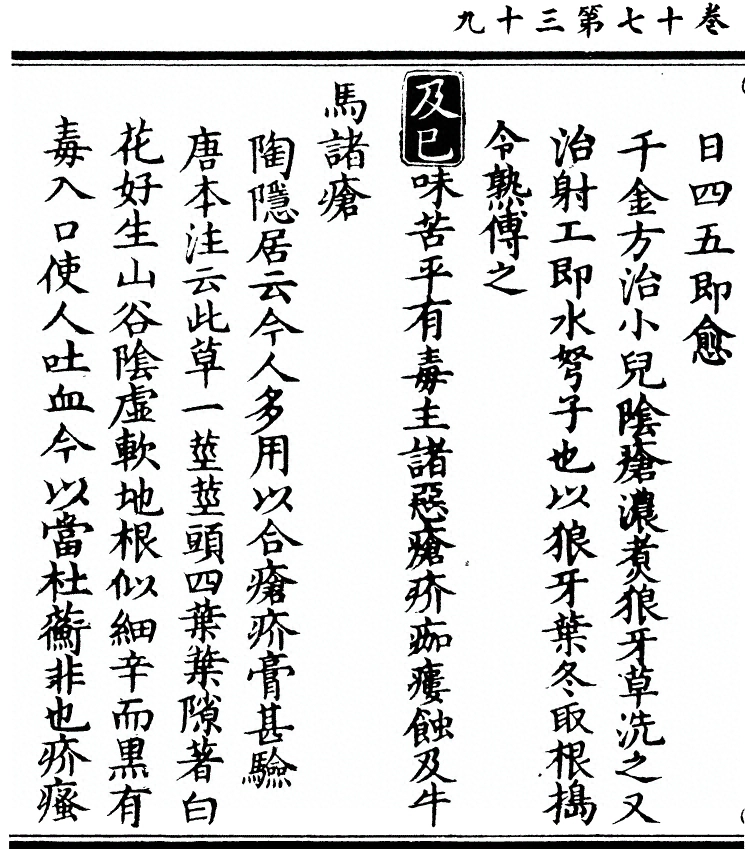 卷十七第三十九
日四五即愈
千金方治小兒陰瘡濃煮狼牙草洗之又
治射工即水弩子也以狼牙葉冬取根搗
令熟傅之
及已味苦平有毒主諸惡瘡疥痂瘻蝕及牛
馬諸瘡
陶隱居云今人多用以合瘡疥膏甚驗
唐本注云此草一莖莖頭四葉葉隙著白
花好生山谷陰虛軟地根似細辛而黑有
毒入口使人吐血今以當杜蘅非也疥瘙